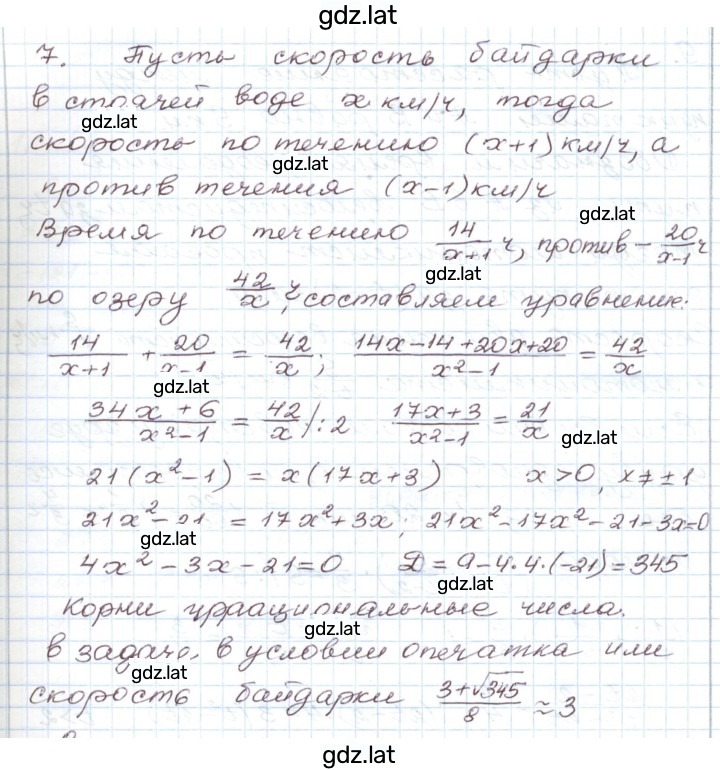 gdz.lat
7. Пусть скорость байдарки
в стоячей воде x км/ч, тогда
gdz.lat
скорость по течению (x+1) км/ч, а
gdz.lat
против течения (x-1) км/ч
gdz.lat
Время по течению 14/(x+1) ч, против - 20/(x-1) ч
gdz.lat
по озеру 42/x ч, составляем уравнение:
14/(x+1) + 20/(x-1) = 42/x; (14x-14+20x+20)/(x²-1) = 42/x
gdz.lat
(34x+6)/(x²-1) = 42/x /:2 (17x+3)/(x²-1) = 21/x
gdz.lat
21(x²-1) = x(17x+3) x>0, x≠±1
21x²-21 = 17x²+3x; 21x²-17x²-21-3x=0
gdz.lat
4x²-3x-21=0 D=9-4·4·(-21)=345
gdz.lat
Корни иррациональные числа.
gdz.lat
в задаче, в условии опечатка или
gdz.lat
скорость байдарки (3+√345)/8 ≈ 3
gdz.lat